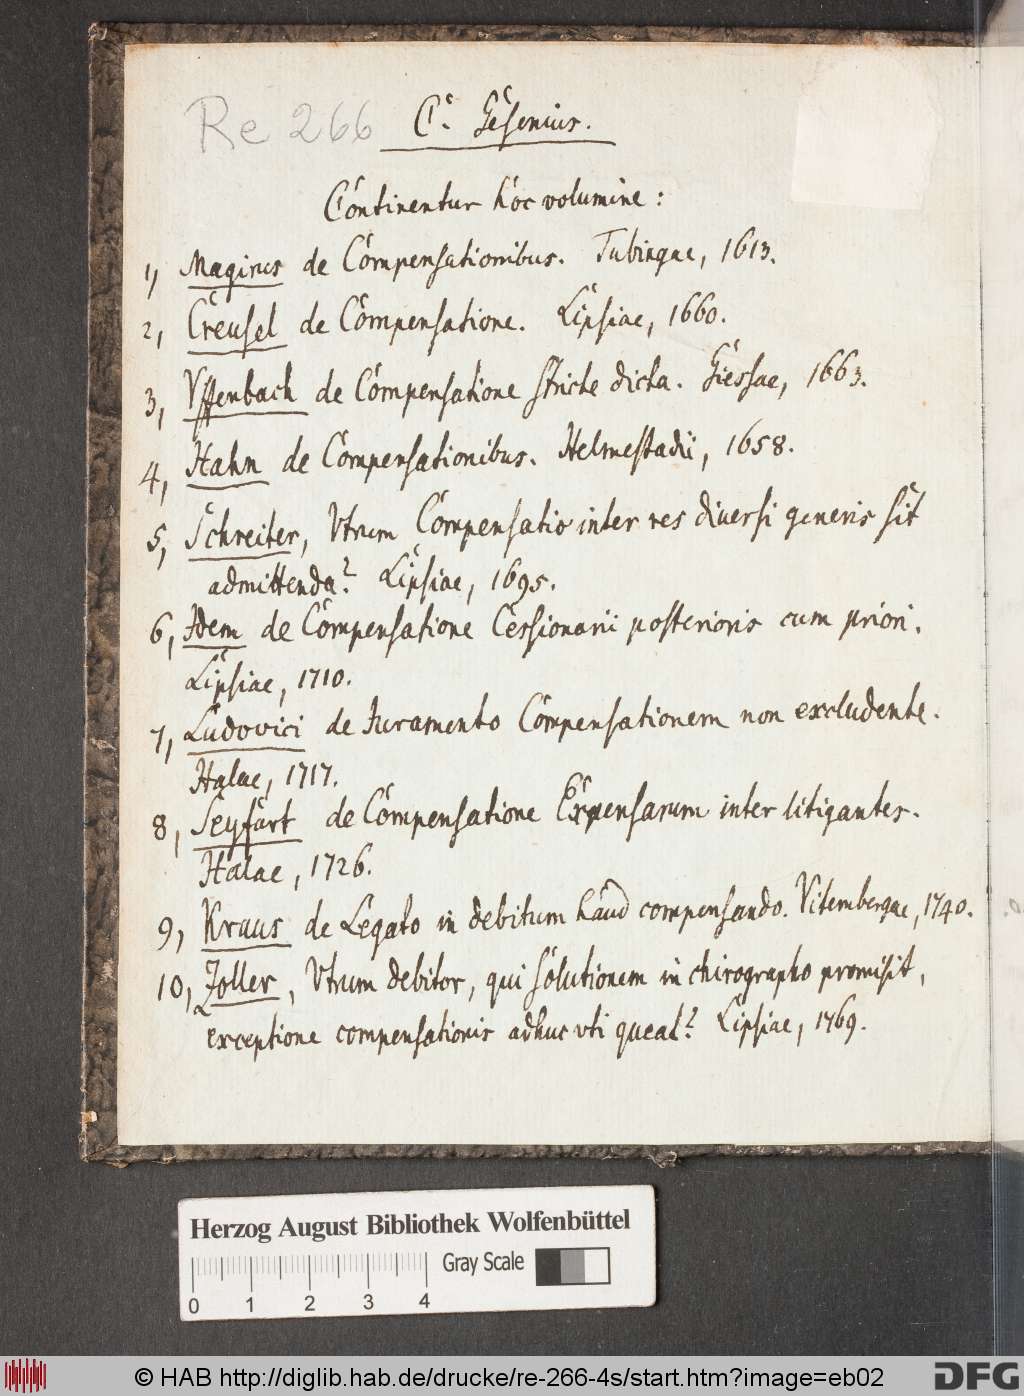 Re 266 C. Gesenius.
Continentur hoc volumine:
1, Magirus de Compensationibus. Tubingae, 1613.
2, Creusel de Compensatione. Lipsiae, 1660.
3, Vffenbach de Compensatione stricte dicta. Giessae, 1663.
4, Hahn de Compensationibus. Helmestadii, 1658.
5, Schreiter, Vtrum Compensatio inter res diuersi generis sit
admittenda? Lipsiae, 1695.
6, Idem de Compensatione Cessionarii posterioris cum priori.
Lipsiae, 1710.
7, Ludovici de Iuramento Compensationem non excludente.
Halae, 1717.
8, Seyfart de Compensatione Expensarum inter litigantes.
Halae, 1726.
9, Kraus de Legato in debitum haud compensando. Vitembergae, 1740.
10, Zoller, Vtrum debitor, qui solutionem in chirographo promisit,
exceptione compensationis adhuc vti queat? Lipsiae, 1769.
Herzog August Bibliothek Wolfenbüttel
Gray Scale
0 1 2 3 4
© HAB http://diglib.hab.de/drucke/re-266-4s/start.htm?image=eb02
DFG